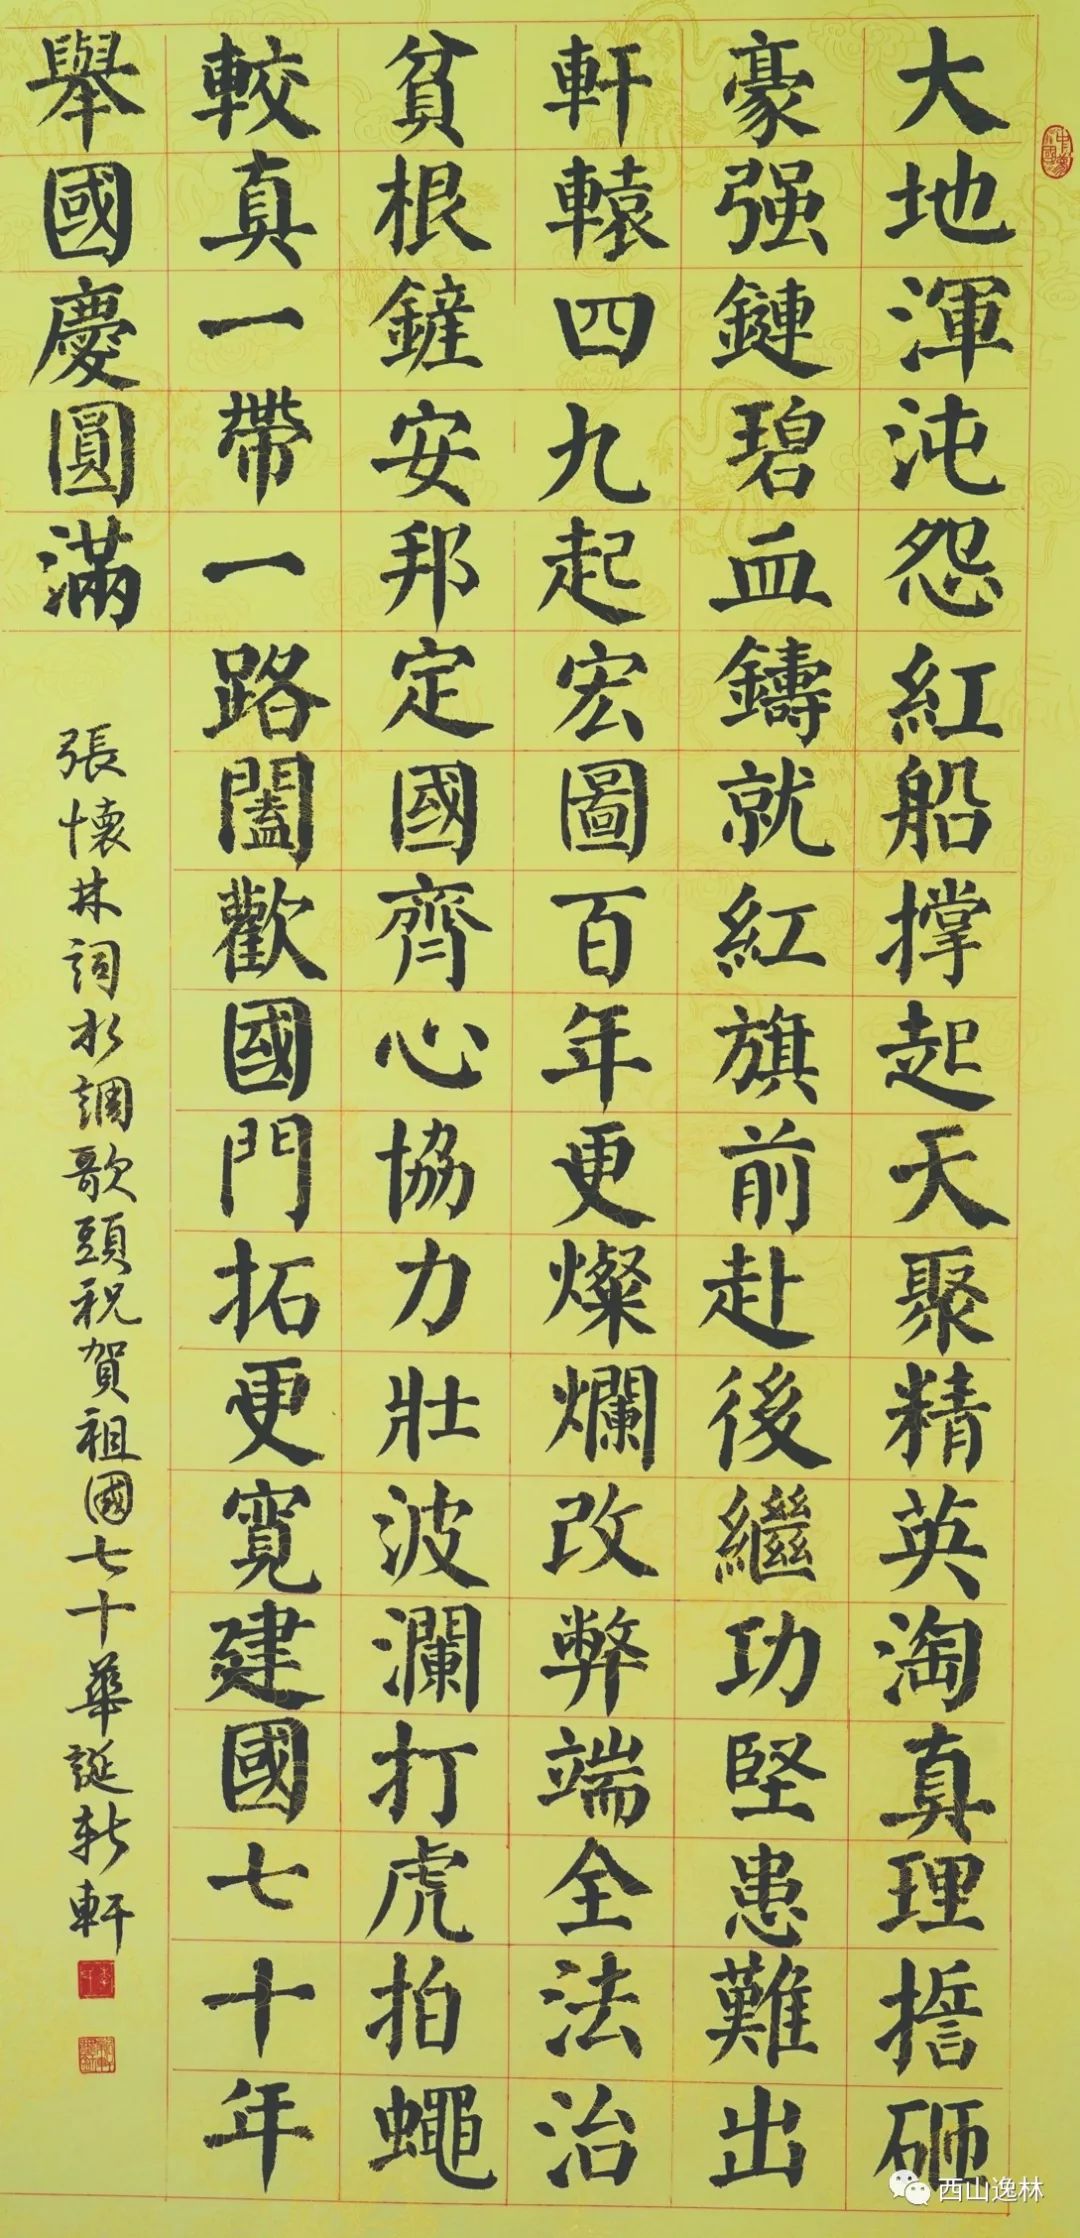 大地渾沌怨紅船撑起天聚精英淘真理誓砸
豪强鏈碧血鑄就紅旗前赴後繼功堅患難出
軒轅四九起宏圖百年更燦爛改弊端全法治
貧根鏟安邦定國齊心協力壯波瀾打虎拍蠅
較真一帶一路闔歡國門拓更寬建國七十年
舉國慶圓滿
張懷林詞水調歌頭祝賀祖國七十華誕新軒
西山逸林